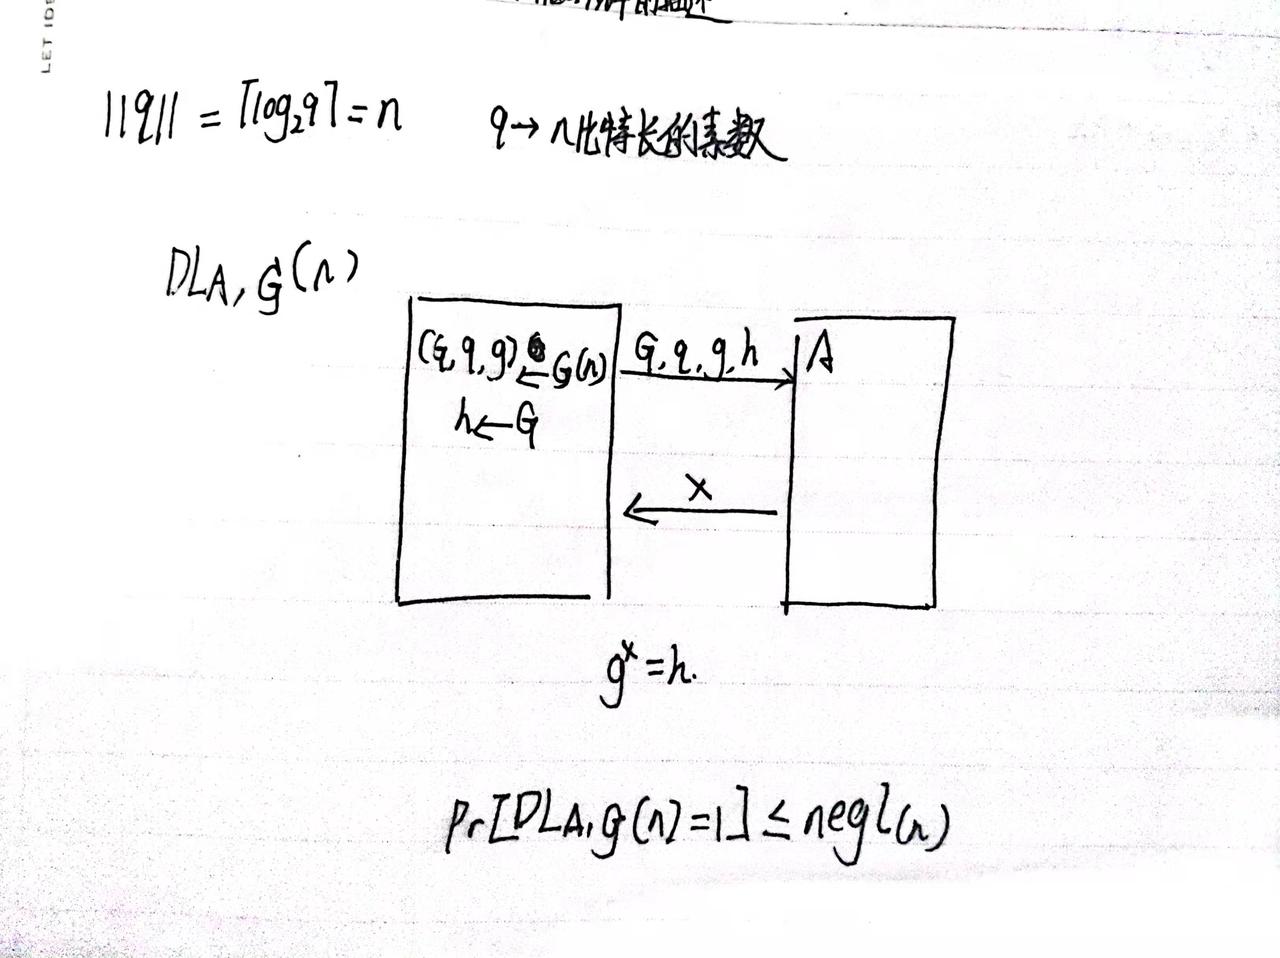 LET IDE
||q|| = ⌈log₂q⌉ = n q → n比特长的素数
DLA,G(n)
(G,q,g) ← G(n) G,q,g,h A
h ← G
x
gˣ = h.
Pr[DLA,G(n)=1] ≤ negl(n)